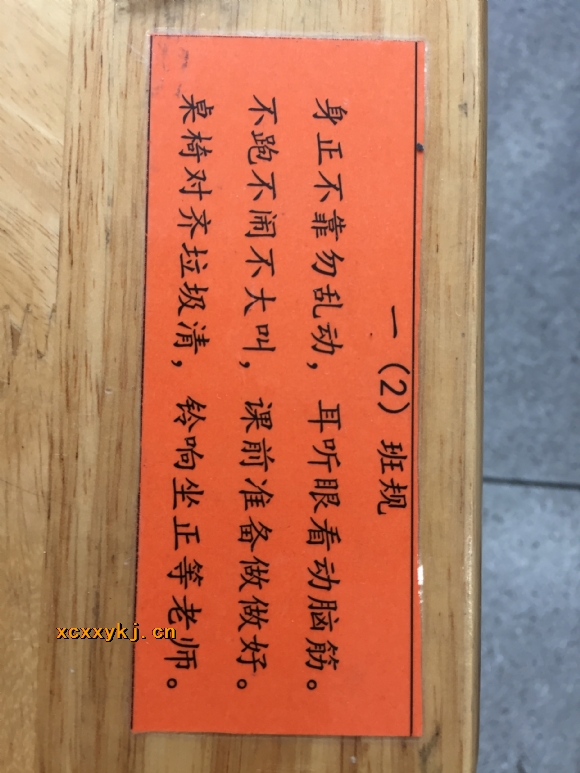 一（2）班规
身正不靠勿乱动，耳听眼看动脑筋。
不跑不闹不大叫，课前准备做做好。
桌椅对齐垃圾清，铃响坐正等老师。
xcxxykj.cn